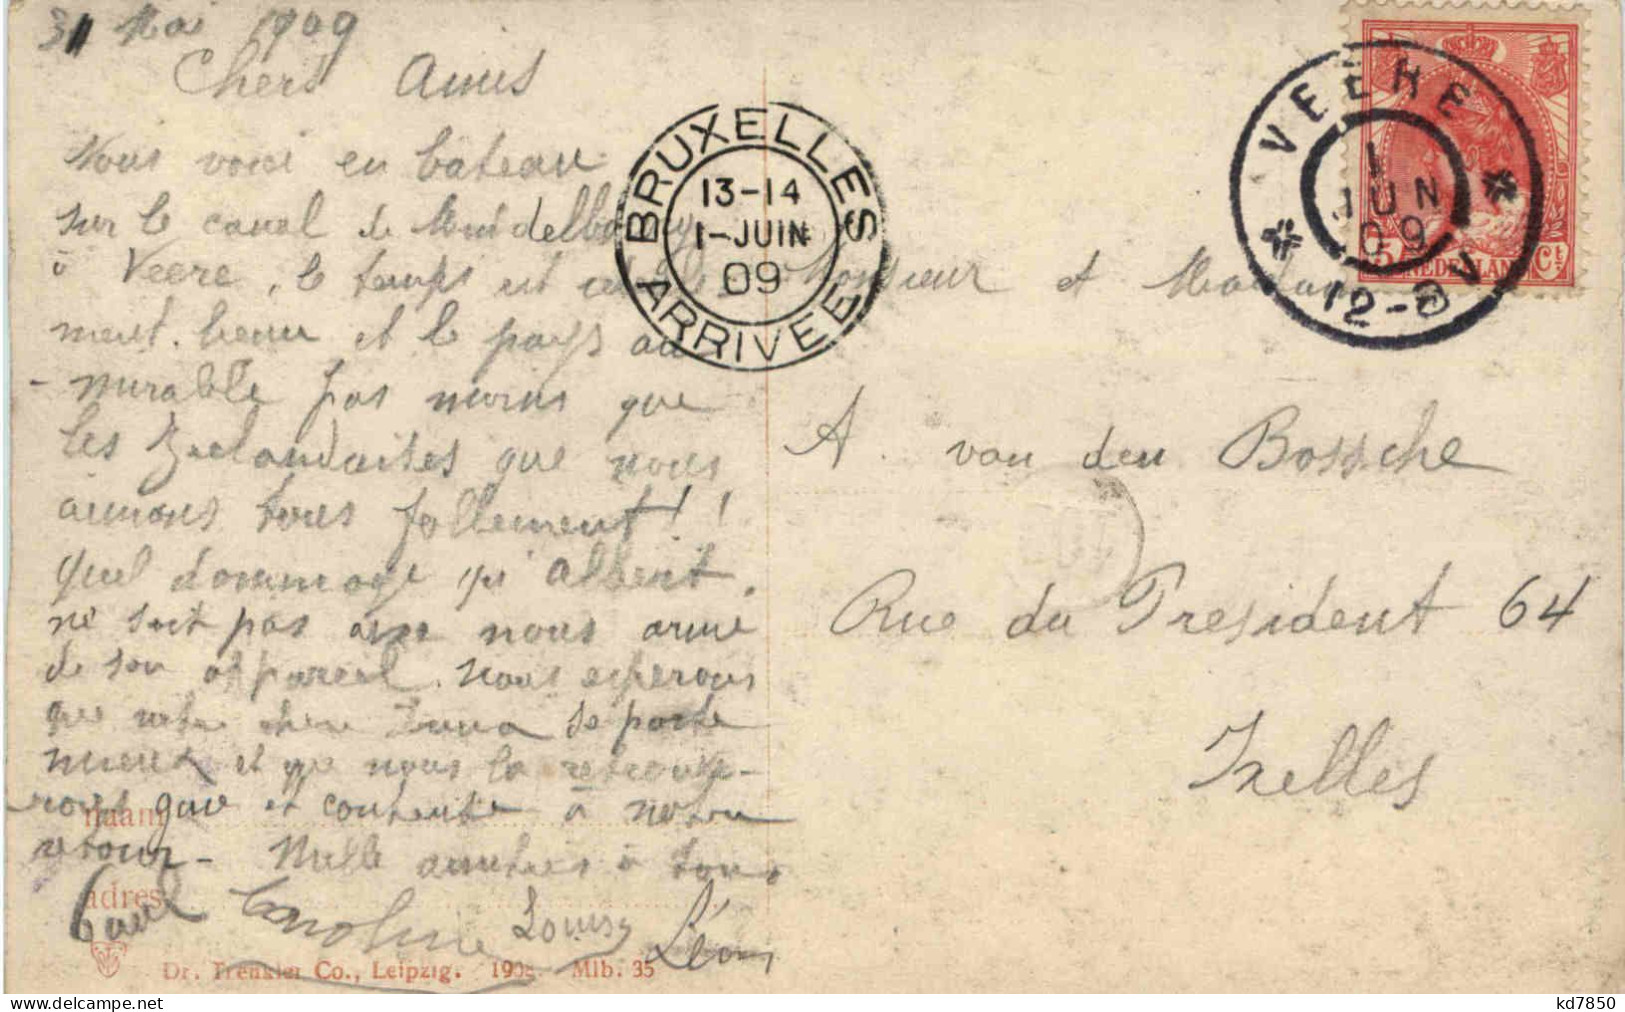 31 Mai 1909
Chers Amis
Nous voici en bateau
sur le canal de Middelbourg
à Veere, le temps est
ment beau et le pays ad
-mirable pas moins que
les Zeelandaises que nous
aimons tous follement!!
Quel dommage qu'Albert
ne soit pas avec nous armé
de son appareil. Nous esperons
que notre chère se porte
mieux et que nous la retrouve-
rons gaie et contente à notre
retour - Mille amitiés à tous
Paul Caroline Louisy Léon
naam
adres
Dr. Trenkler Co., Leipzig. 1908. Mlb. 35
BRUXELLES
13-14
1-JUIN
09
ARRIVEE
VEERE
1
JUN
09
12-
5 NEDERLAND Ct
Monsieur et Madame
A. van den Bossche
Rue du President 64
Ixelles
kd7850